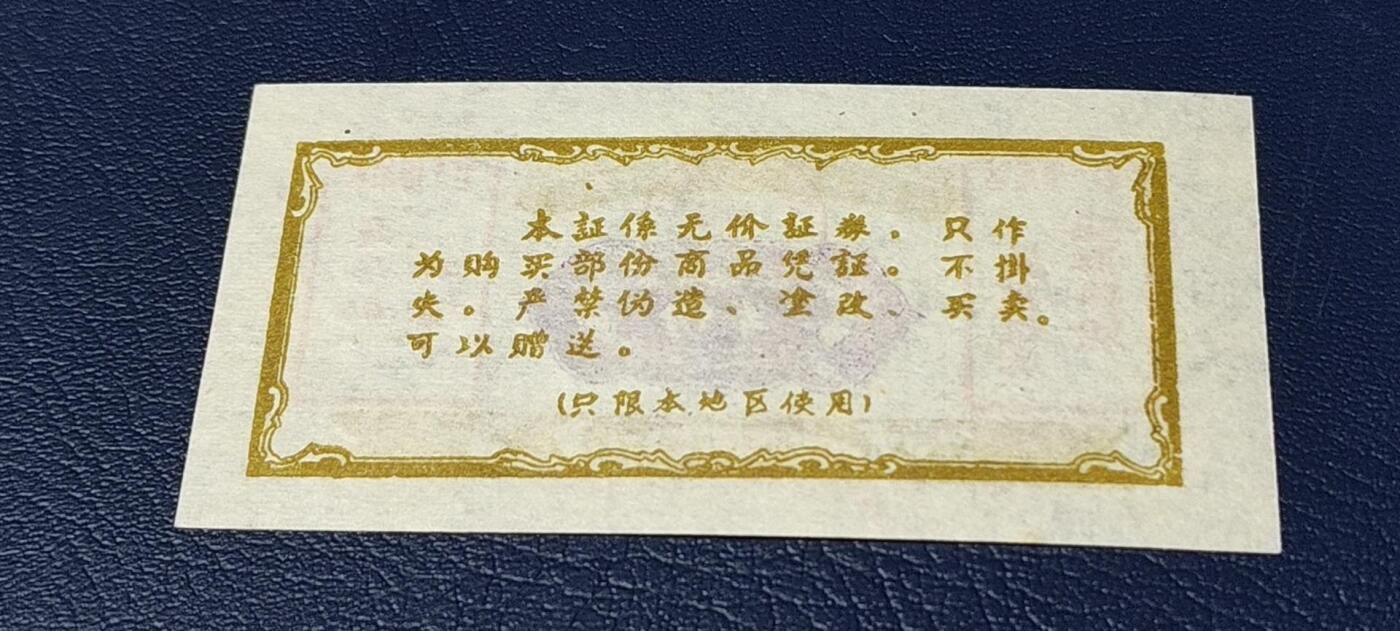 本証係无价証券。只作
为购买部份商品凭証。不掛
失。严禁伪造、塗改、买卖。
可以赠送。
(只限本地区使用)